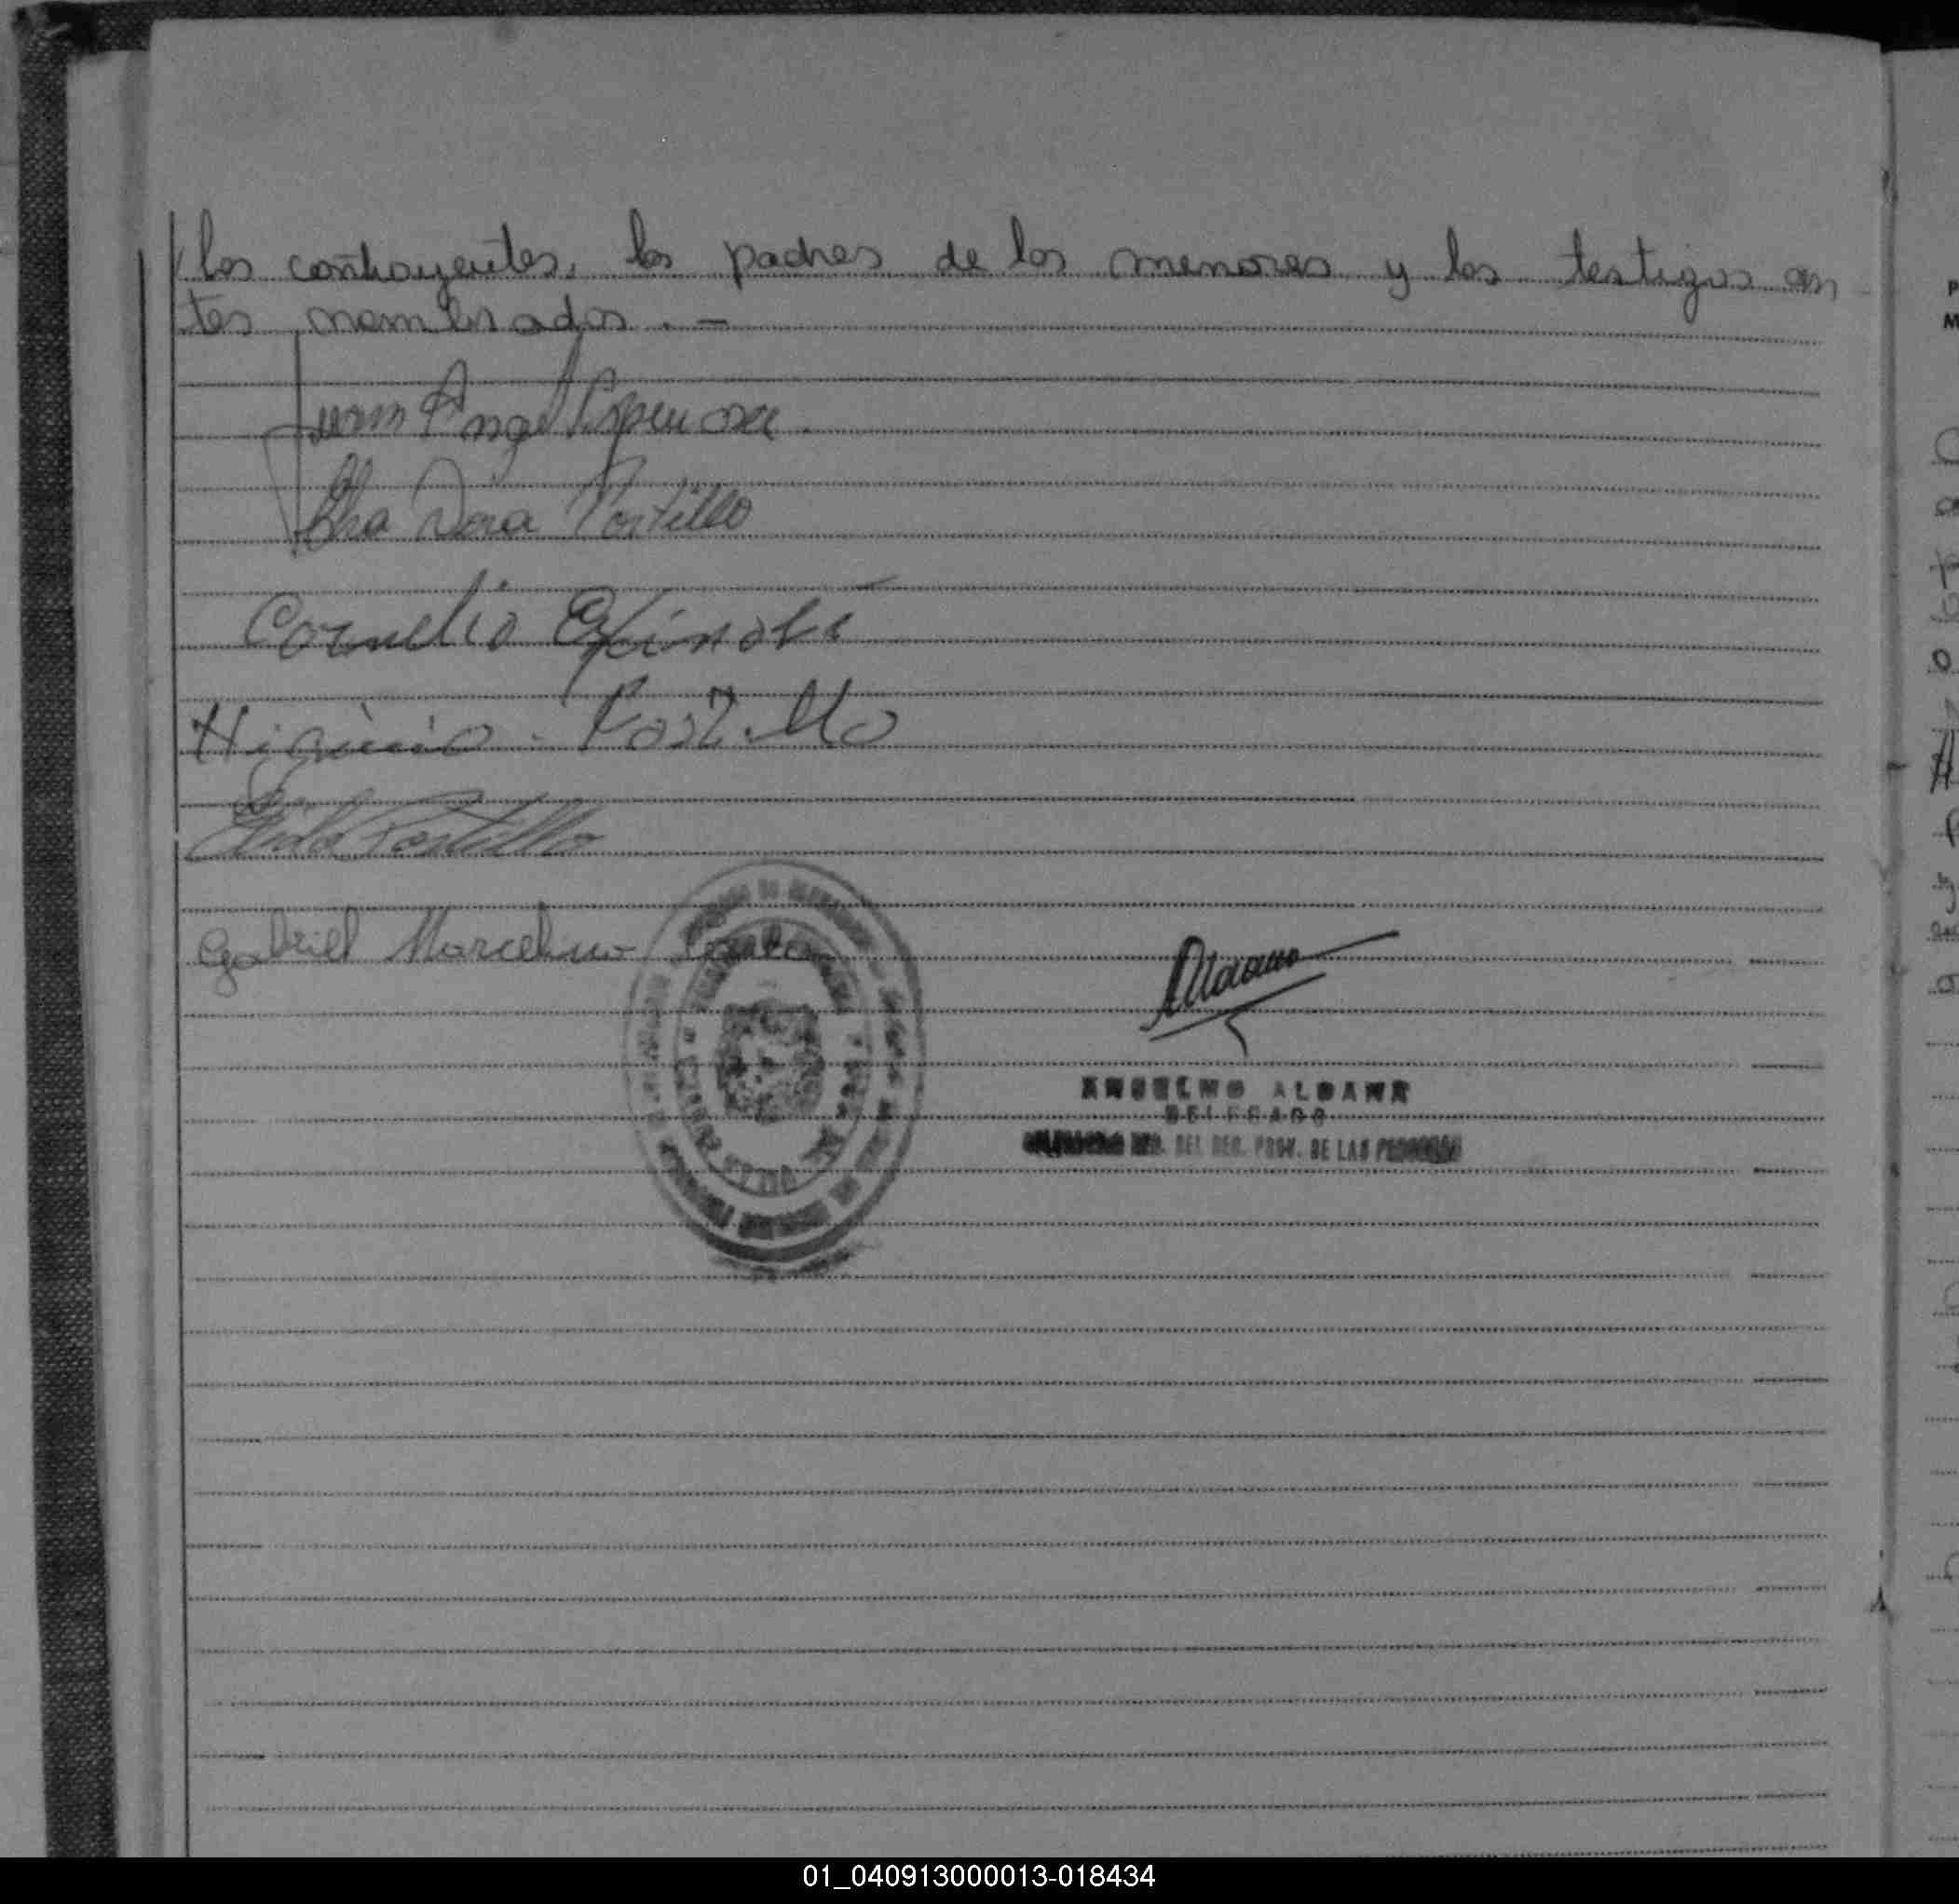 los contrayentes, los padres de los menores y los testigos an
tes nombrados . –
Juan Angel Espinosa
Alba Vera Portillo
Cornelio Espinosa
Higinio Portillo
Portillo
Gabriel Marcelino
ANSELMO ALDANA
DELEGADO
DEL REG. PROV. DE LAS PERSONAS
01_040913000013-018434